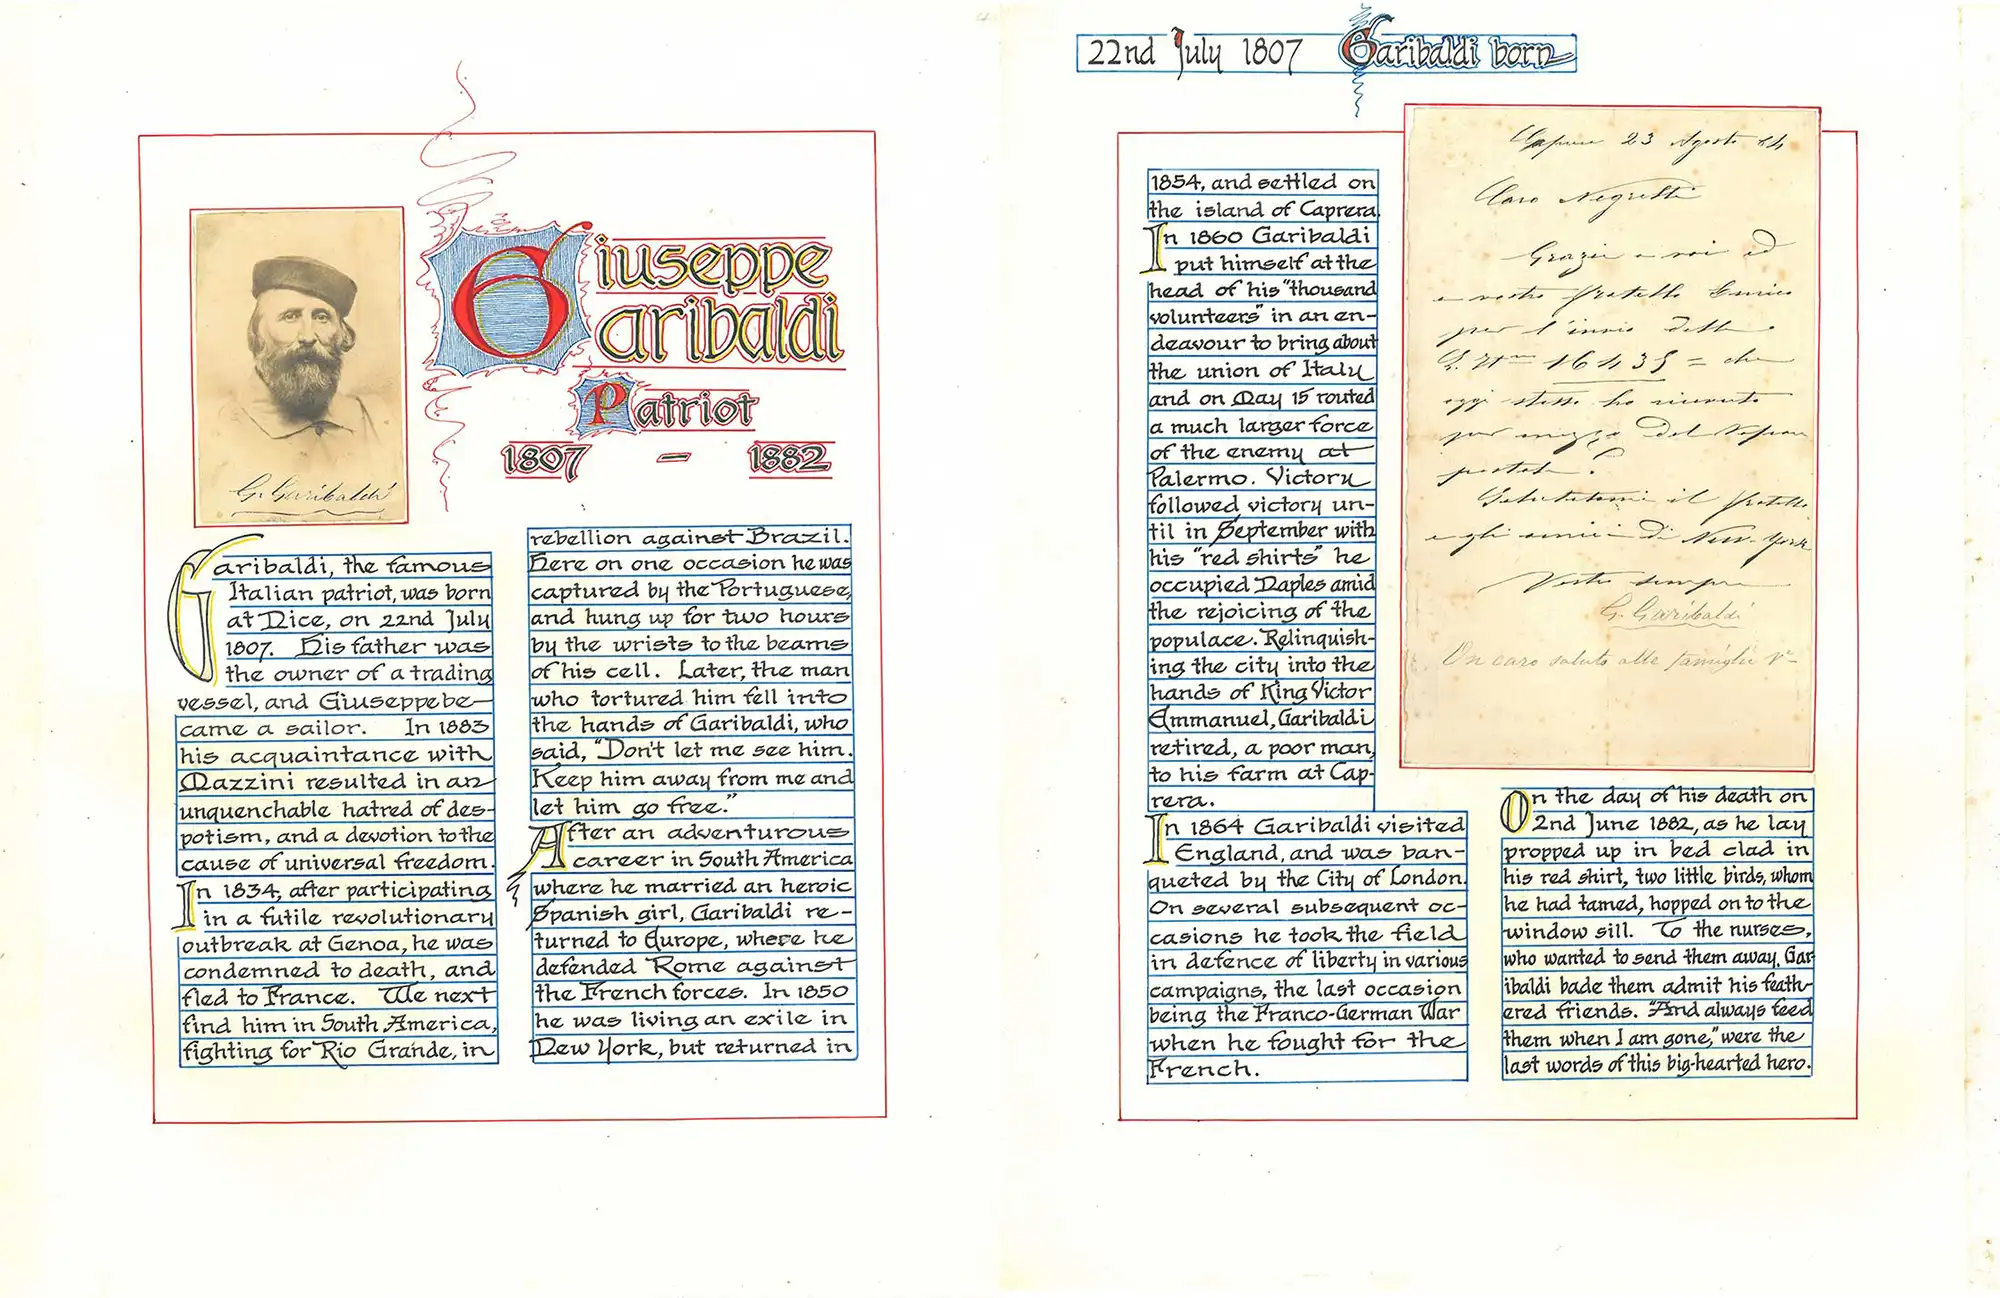 Giuseppe
Garibaldi
Patriot
1807 – 1882
G. Garibaldi
Garibaldi, the famous
Italian patriot, was born
at Nice, on 22nd July
1807. His father was
the owner of a trading
vessel, and Giuseppe be-
came a sailor. In 1883
his acquaintance with
Mazzini resulted in an
unquenchable hatred of des-
potism, and a devotion to the
cause of universal freedom.
In 1834, after participating
in a futile revolutionary
outbreak at Genoa, he was
condemned to death, and
fled to France. We next
find him in South America,
fighting for Rio Grande, in
rebellion against Brazil.
Here on one occasion he was
captured by the Portuguese,
and hung up for two hours
by the wrists to the beams
of his cell. Later, the man
who tortured him fell into
the hands of Garibaldi, who
said, "Don't let me see him.
Keep him away from me and
let him go free."
After an adventurous
career in South America
where he married an heroic
Spanish girl, Garibaldi re-
turned to Europe, where he
defended Rome against
the French forces. In 1850
he was living an exile in
New York, but returned in
22nd July 1807 Garibaldi born
1854, and settled on
the island of Caprera.
In 1860 Garibaldi
put himself at the
head of his "thousand
volunteers" in an en-
deavour to bring about
the union of Italy
and on May 15 routed
a much larger force
of the enemy at
Palermo. Victory
followed victory un-
til in September with
his "red shirts" he
occupied Naples amid
the rejoicing of the
populace. Relinquish-
ing the city into the
hands of King Victor
Emmanuel, Garibaldi
retired, a poor man,
to his farm at Cap-
rera.
In 1864 Garibaldi visited
England, and was ban-
queted by the City of London.
On several subsequent oc-
casions he took the field
in defence of liberty in various
campaigns, the last occasion
being the Franco-German War
when he fought for the
French.
Caprera 23 Agosto 64
Caro Negretti
Grazie a voi ed
a vostro fratello Enrico
per l'invio della
16435 = che
oggi stesso ho ricevuto
per mezzo del Vapore
postale.
Salutatemi il fratello
e gli amici di New-York
Vostro sempre
G. Garibaldi
Un caro saluto alle famiglie
On the day of his death on
2nd June 1882, as he lay
propped up in bed clad in
his red shirt, two little birds, whom
he had tamed, hopped on to the
window sill. To the nurses,
who wanted to send them away, Gar
ibaldi bade them admit his feath-
ered friends. "And always feed
them when I am gone," were the
last words of this big-hearted hero.